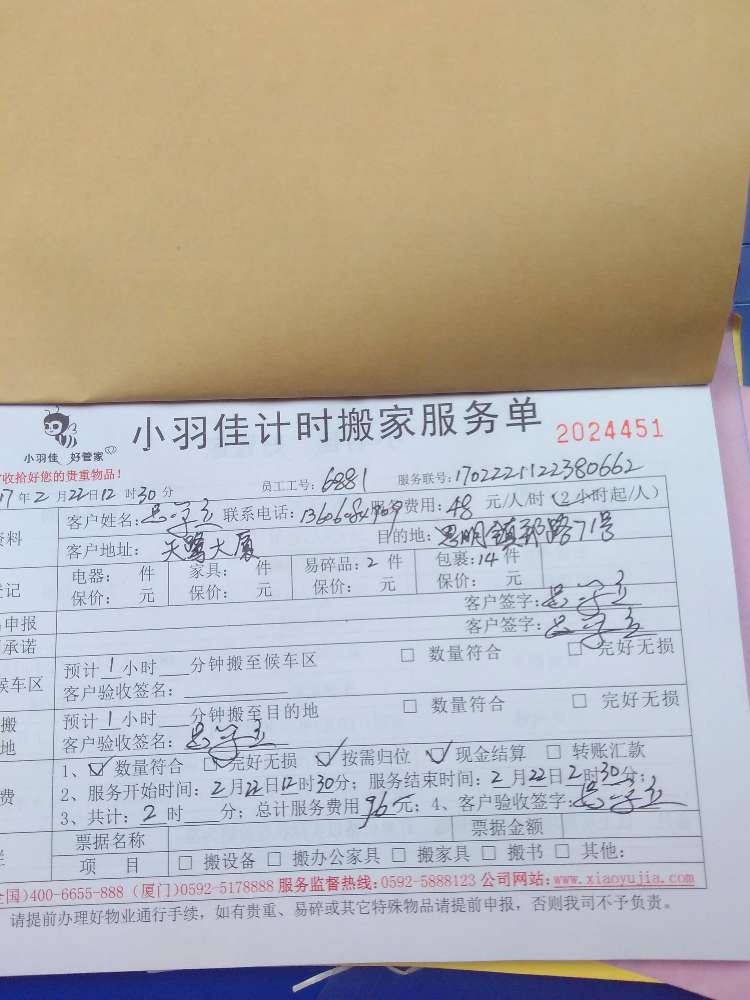 小羽佳计时搬家服务单
2024451
小羽佳 好管家
收拾好您的贵重物品!
员工工号: 6881 服务联号: 1702221122380662
17年2月22日12时30分
资料 客户姓名: 联系电话: 服务费用: 48 元/人/时 (2小时起/人)
客户地址: 天鹭大厦 目的地: 思明镇邦路71号
登记 电器: 件 家具: 件 易碎品: 2 件 包裹: 14 件
保价: 元 保价: 元 保价: 元 保价: 元
申报 客户签字:
承诺 客户签字:
候车区 预计1小时 分钟搬至候车区 □ 数量符合 □ 完好无损
客户验收签名:
搬 预计1小时 分钟搬至目的地 □ 数量符合 □ 完好无损
地 客户验收签名:
费 1、☑ 数量符合 ☑ 完好无损 ☑ 按需归位 ☑ 现金结算 □ 转账汇款
2、服务开始时间: 2月22日12时30分; 服务结束时间: 2月22日2时30分;
3、共计: 2时 分; 总计服务费用96元; 4、客户验收签字:
票据名称 票据金额
项 目 □ 搬设备 □ 搬办公家具 □ 搬家具 □ 搬书 □ 其他:
全国)400-6655-888 (厦门)0592-5178888 服务监督热线:0592-5888123 公司网站:www.xiaoyujia.com
请提前办理好物业通行手续,如有贵重、易碎或其它特殊物品请提前申报,否则我司不予负责。